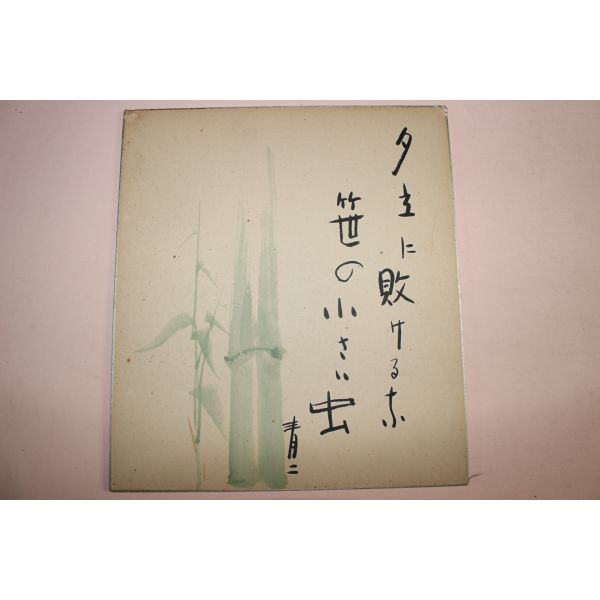 夕立に敗けるな
笹の小さい虫
青二